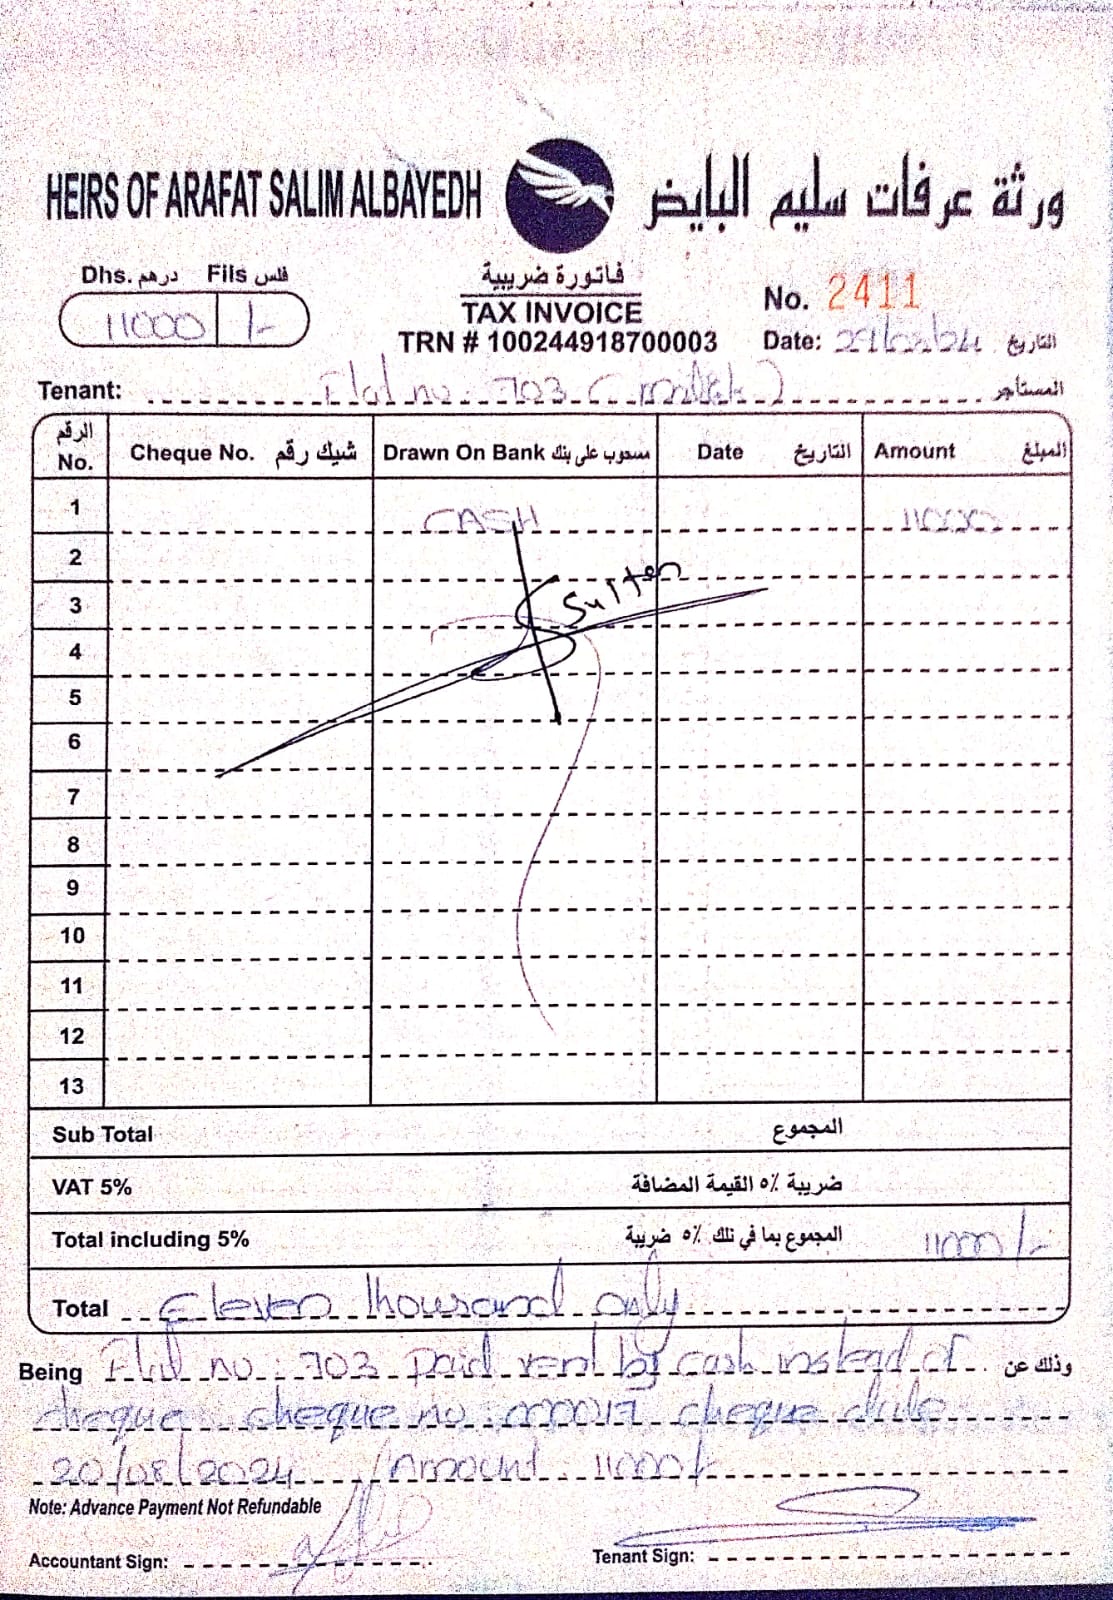 HEIRS OF ARAFAT SALIM ALBAYEDH
ورثة عرفات سليم البايض
Dhs. درهم Fils فلس
11000 /-
فاتورة ضريبية
TAX INVOICE
TRN # 100244918700003
No. 2411
Date: التاريخ
Tenant: Flat no : 703 ( ) المستأجر
الرقم No. Cheque No. شيك رقم Drawn On Bank مسحوب على بنك Date التاريخ Amount المبلغ
1 CASH 11000
2
3 Sulten
4
5
6
7
8
9
10
11
12
13
Sub Total المجموع
VAT 5% ضريبة ٥٪ القيمة المضافة
Total including 5% المجموع بما في تلك ٥٪ ضريبة 11000/-
Total Eleven thousand only
Being Flat no : 703 paid rent by cash instead of وذلك عن
cheque cheque no : 000017 cheque date
20/08/2024 /Amount 11000/-
Note: Advance Payment Not Refundable
Accountant Sign:
Tenant Sign: